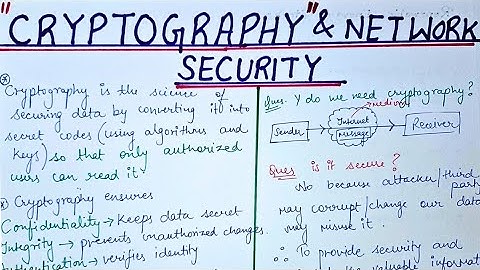 "CRYPTOGRAPHY" & NETWORK
SECURITY
Cryptography is the science of
securing data by converting it into
secret codes (using algorithms and
keys) so that only authorized
users can read it.
Cryptography ensures
Confidentiality → Keeps data secret
Integrity → prevents unauthorized changes.
Authentication → verifies identity
Ques. Y do we need cryptography?
medium
Sender
Internet
message
Receiver
Ques is it secure?
No because attacker/third
party
may corrupt/change our data
may misuse it.
∴ To provide security and
valuable informat